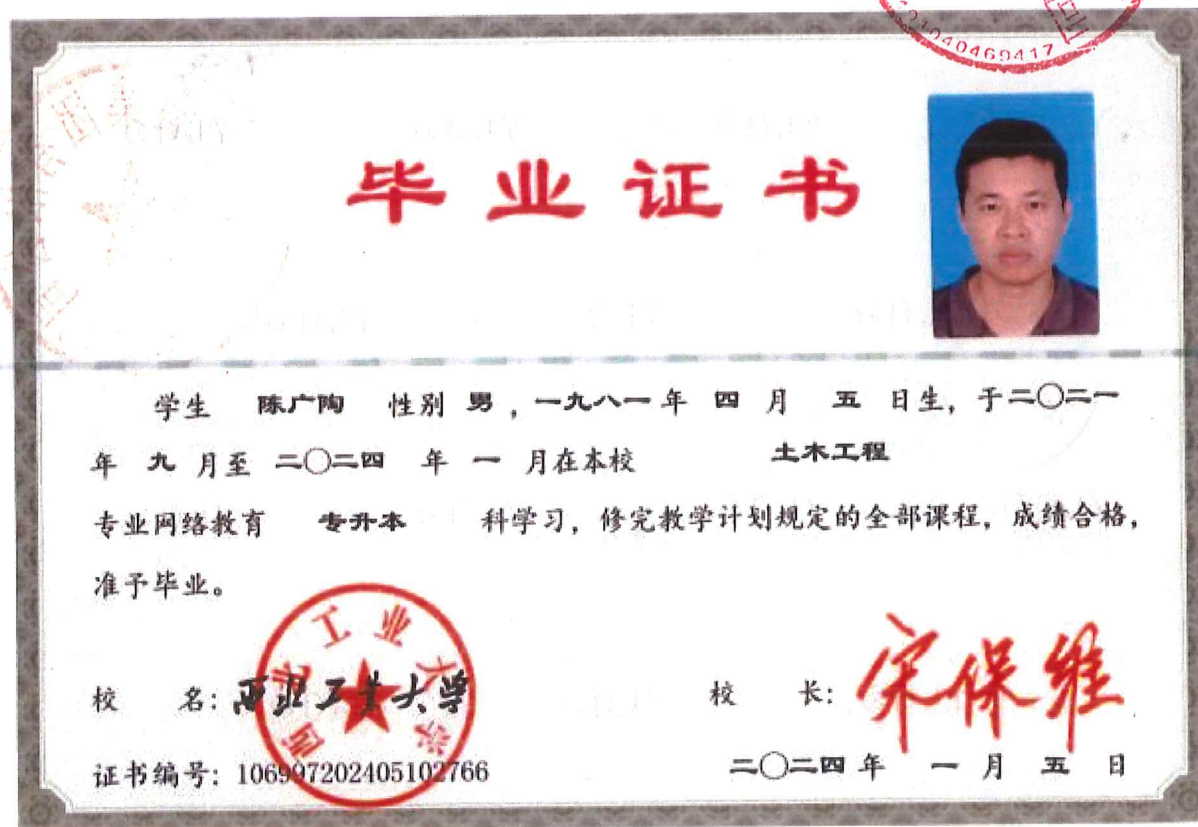 2021040469417
毕业证书
学生 陈广陶 性别 男，一九八一年 四 月 五 日生，于二〇二一
年 九 月至 二〇二四 年 一 月在本校 土木工程
专业网络教育 专升本 科学习，修完教学计划规定的全部课程，成绩合格，
准予毕业。
西北工业大学
校 名：西北工业大学 校 长：宋保维
证书编号：106997202405102766 二〇二四年 一 月 五 日